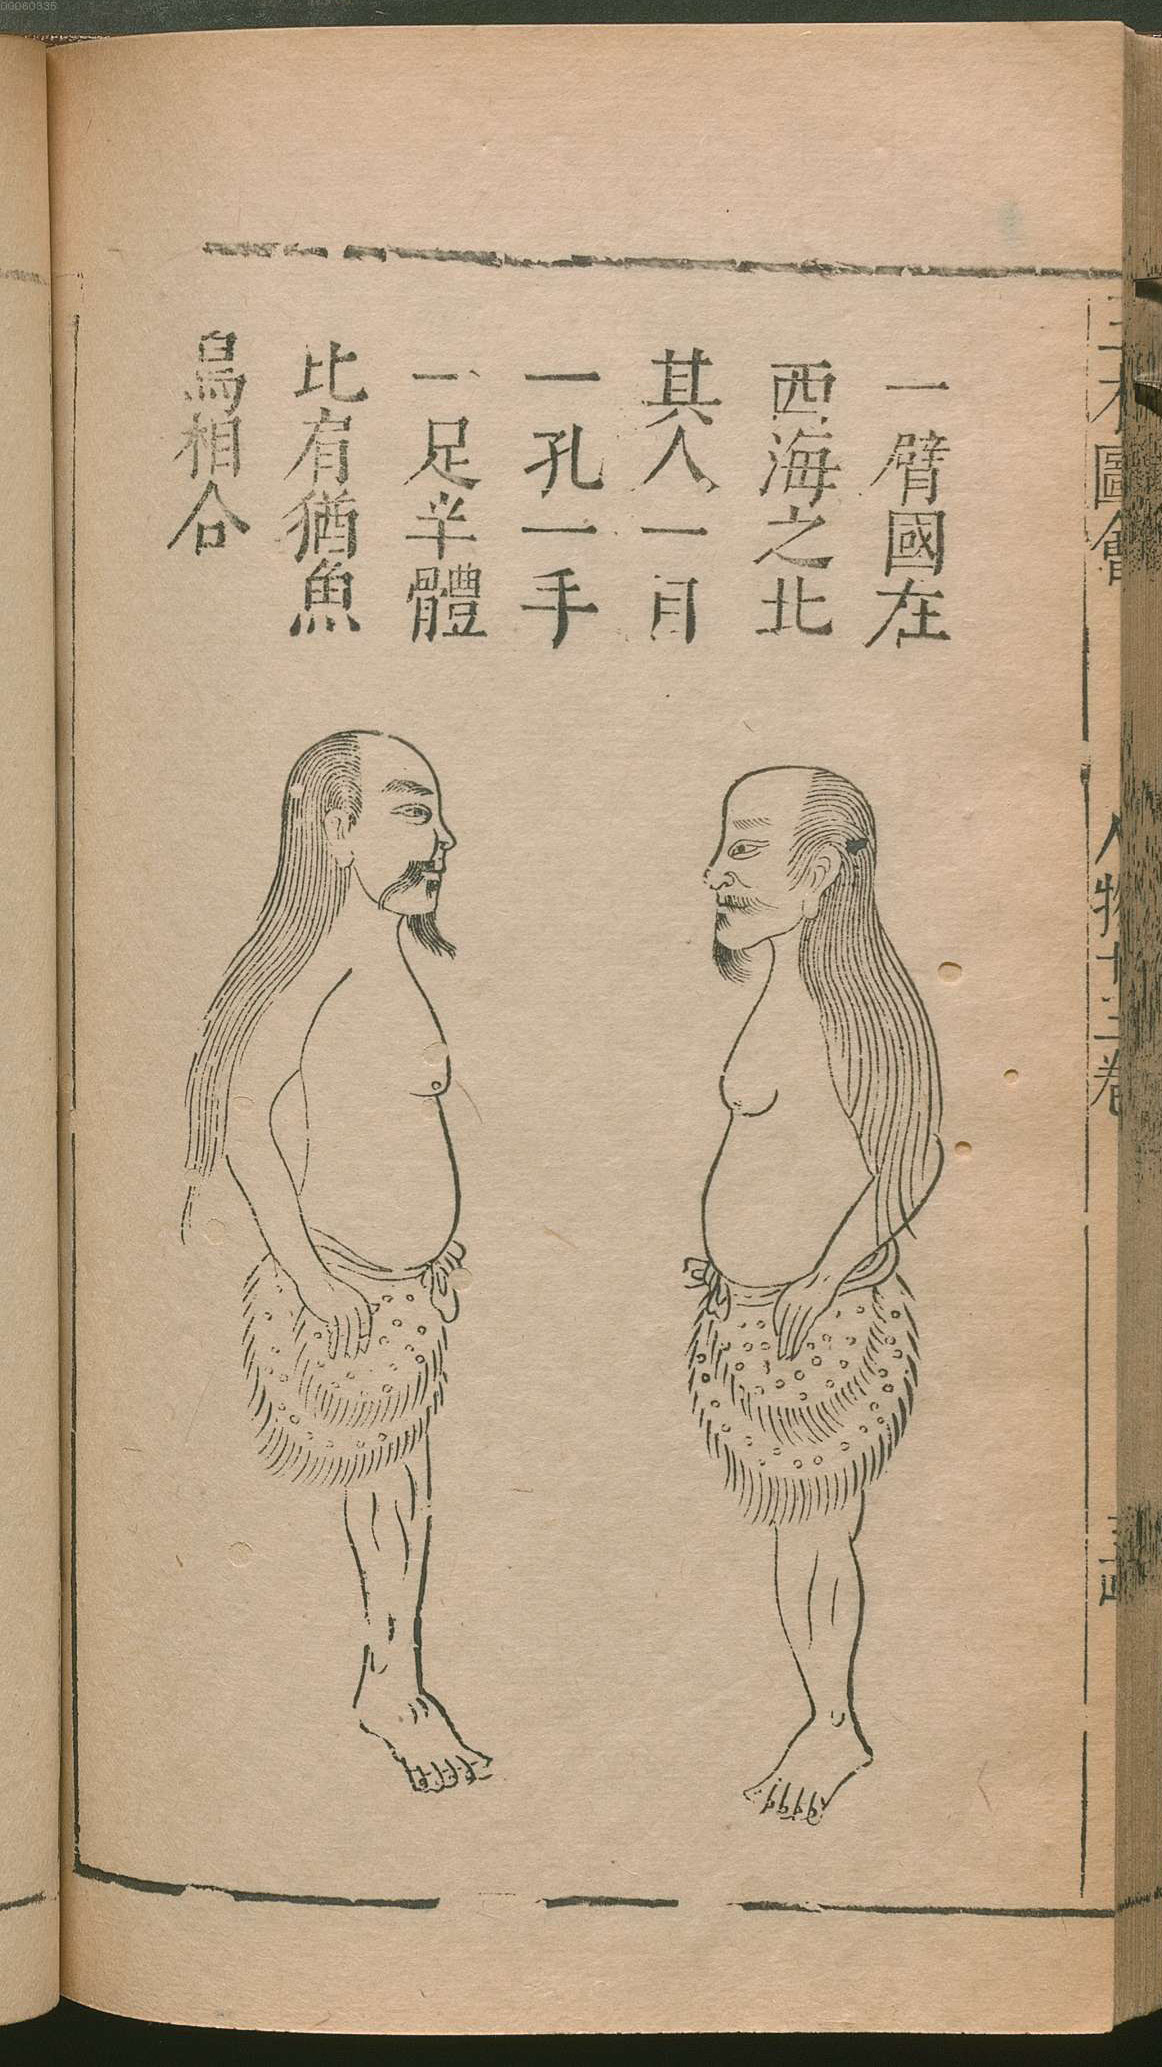 一臂國在
西海之北
其人一目
一孔一手
一足半體
比肩猶魚
鳥相合
圖會
人物十三卷
00060335